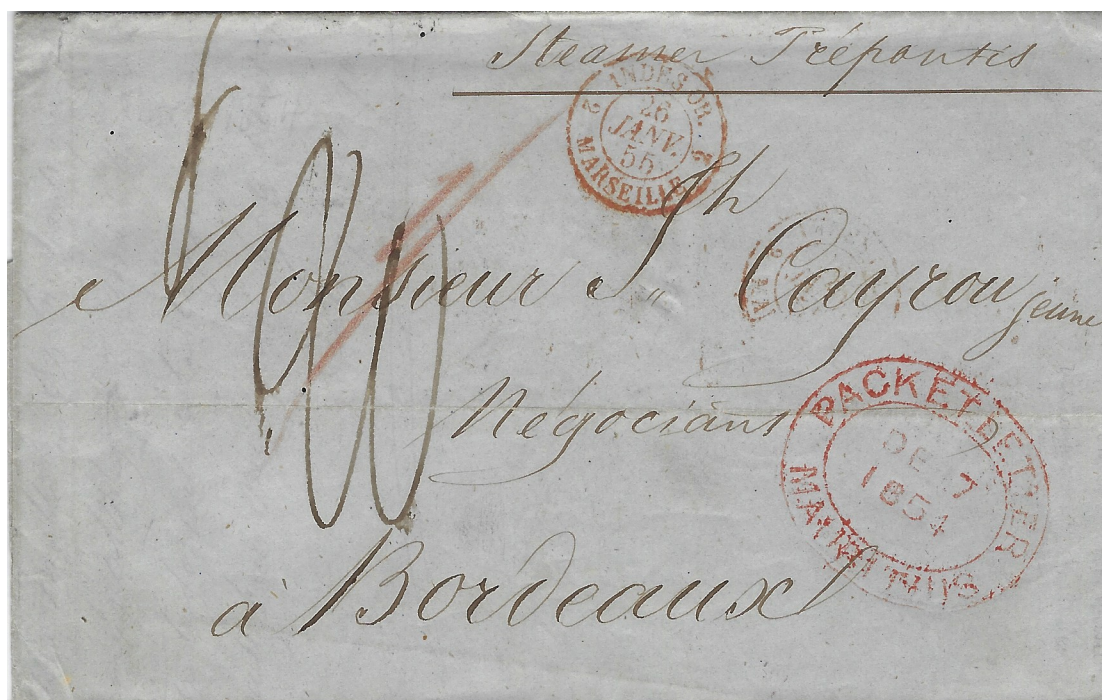 Steamer Trépontis
INDES OR.
2 26 2
JANV.
55
MARSEILLE
Monsieur J.h Cayrou jeune
Négociant
PACKET LETTER
DE 7
1854
MAURITIUS
à Bordeaux